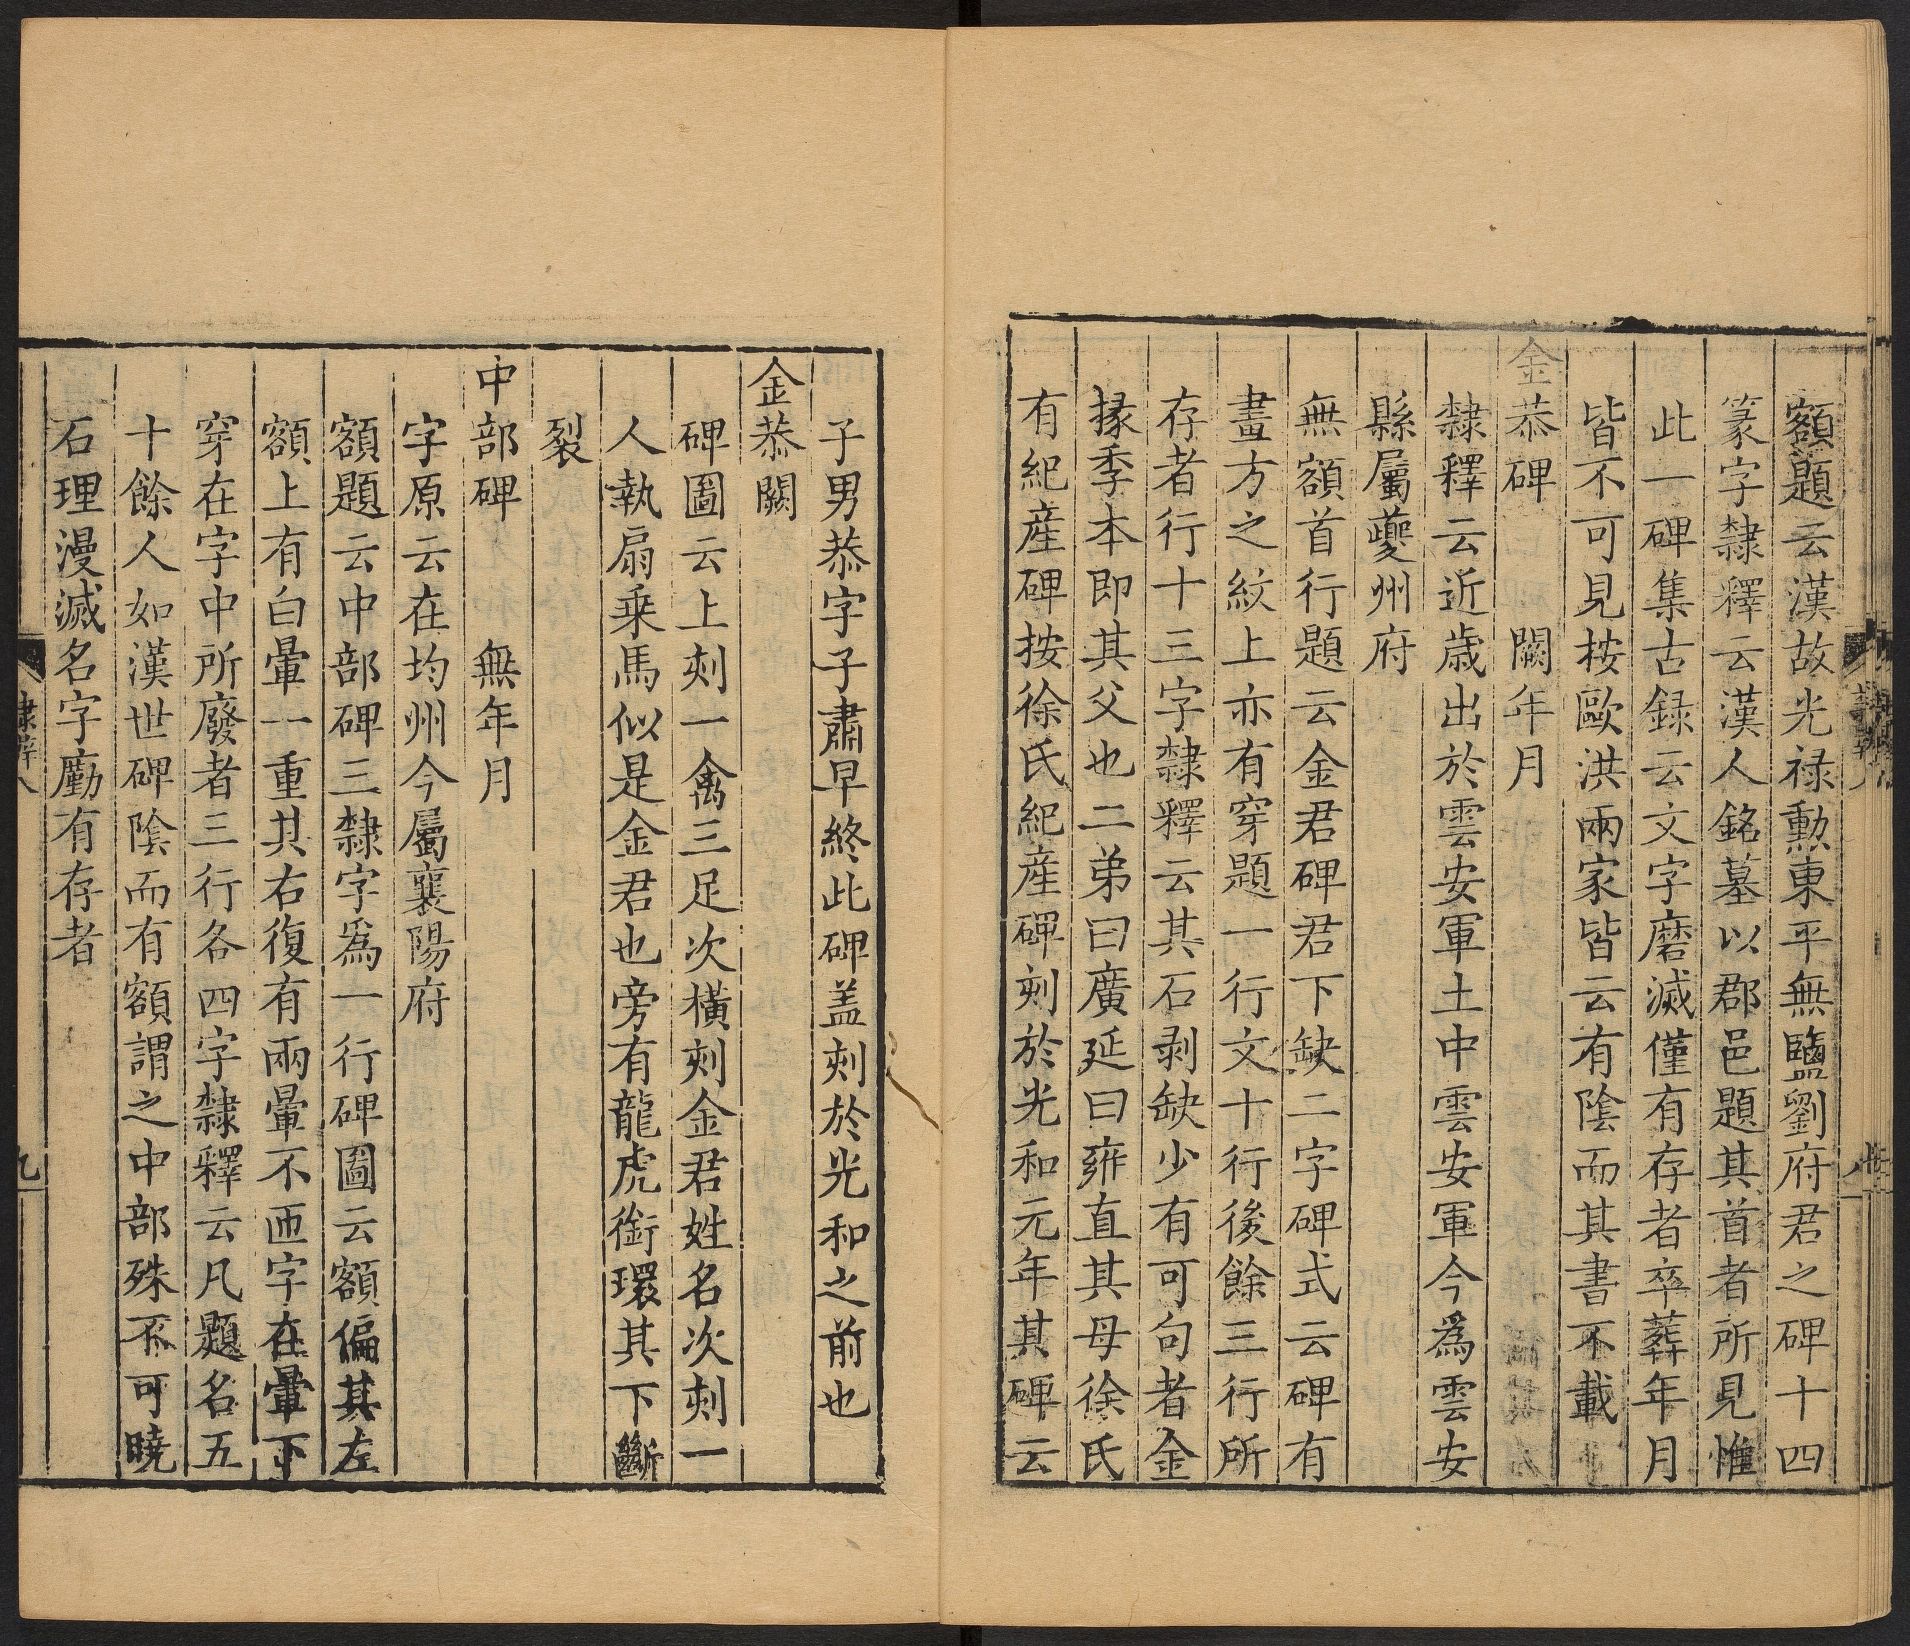 額題云漢故光祿勳東平無鹽劉府君之碑十四
篆字隸釋云漢人銘墓以郡邑題其首者所見惟
此一碑集古録云文字磨滅僅有存者卒葬年月
皆不可見按歐洪兩家皆云有陰而其書不載
金恭碑 闕年月
隸釋云近歳出於雲安軍土中雲安軍今為雲安
縣屬夔州府
無額首行題云金君碑君下缺二字碑式云碑有
畫方之紋上亦有穿題一行文十行後餘三行所
存者行十三字隸釋云其石剥缺少有可句者金
掾季本即其父也二弟曰廣延曰雍直其母徐氏
有紀産碑按徐氏紀産碑刻於光和元年其碑云
子男恭字子肅早終此碑盖刻於光和之前也
金恭闕
碑圖云上刻一禽三足次橫刻金君姓名次刻一
人執扇乘馬似是金君也旁有龍虎銜環其下斷
裂
中部碑 無年月
字原云在均州今屬襄陽府
額題云中部碑三隸字爲一行碑圖云額偏其左
額上有白暈一重其右復有兩暈不匝字在暈下
穿在字中所廢者三行各四字隸釋云凡題名五
十餘人如漢世碑陰而有額謂之中部殊不可曉
石理漫滅名字勵有存者
隸辨八
九